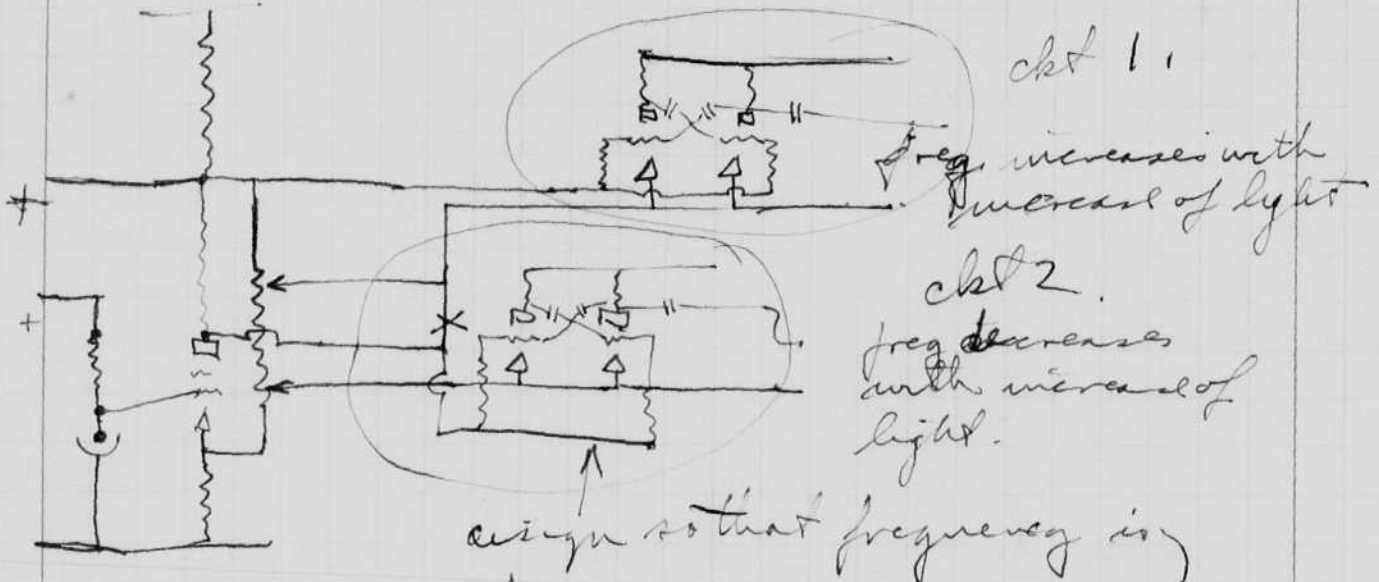 ckt 1.
freq. increases with
increase of light
ckt 2.
freq decreases
with increase of
light.
+
+
design so that frequency is